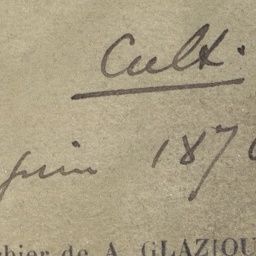 Cult.
juin 187
rbier de A. GLAZIOU